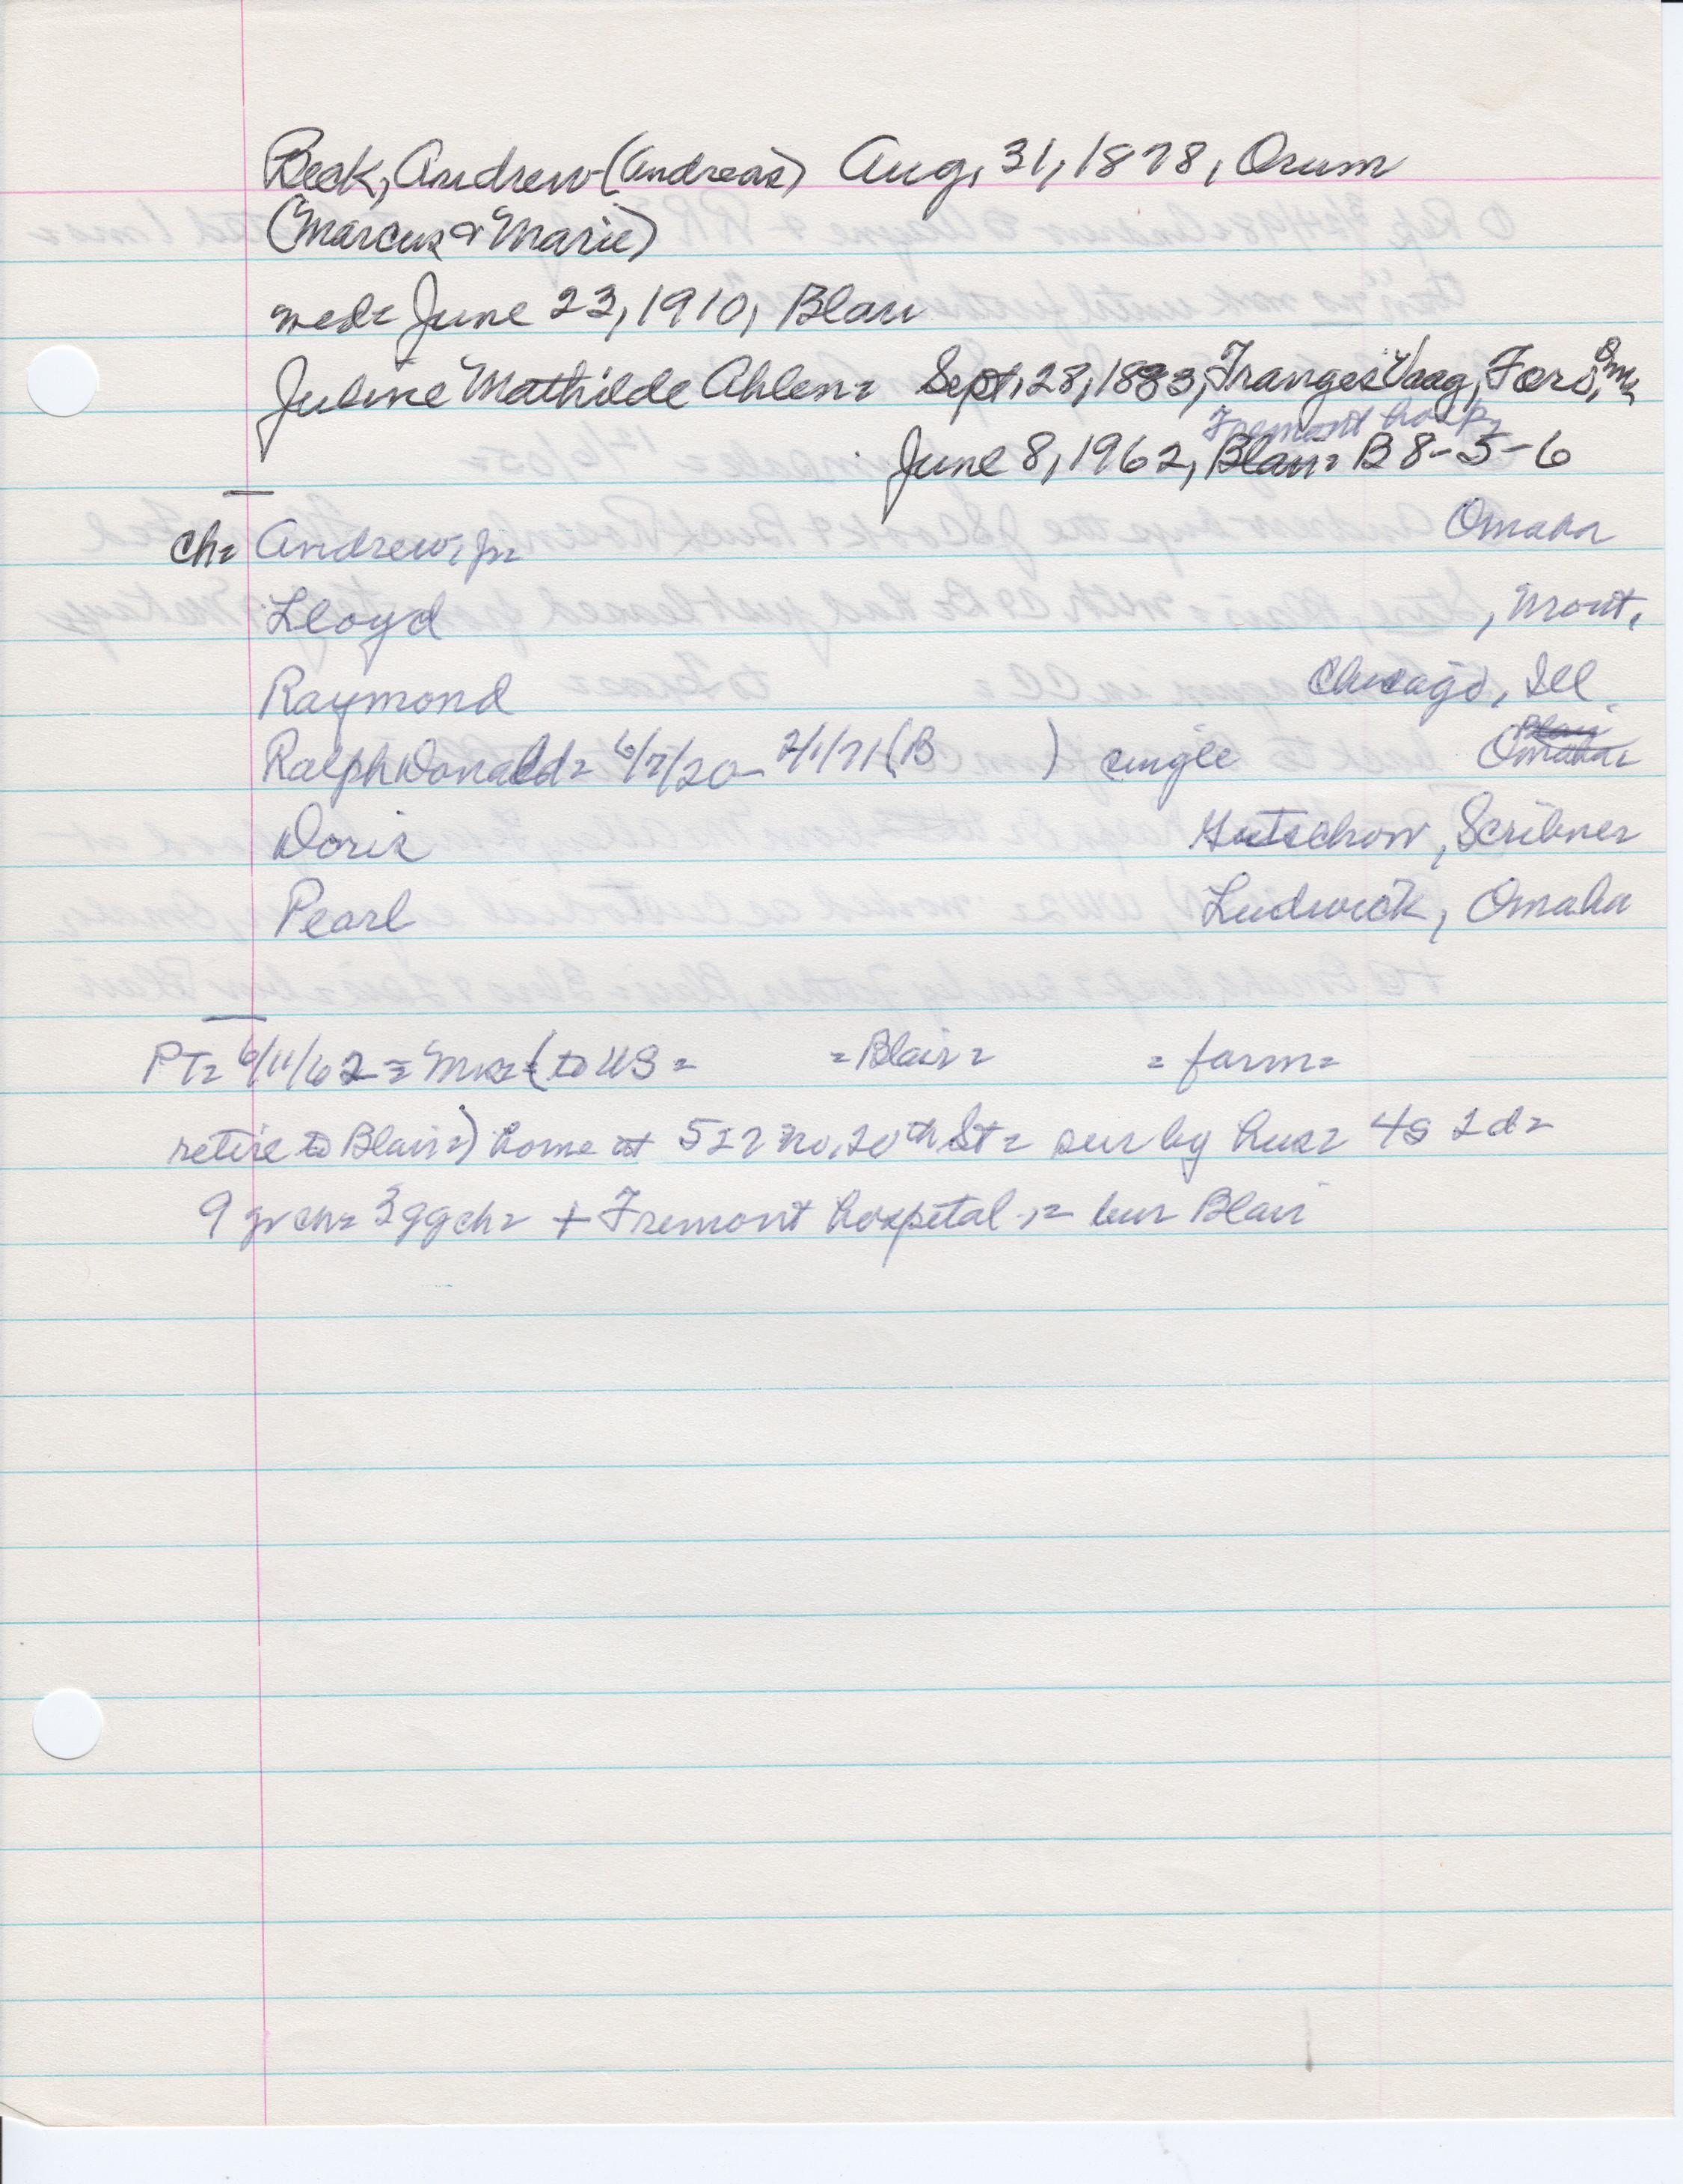 Beck, Andrew (Andreas) Aug, 31, 1878, Orum
(Marcus & Marie)
med= June 23, 1910, Blair
Juline Mathilde Ahlen= Sept, 28, 1883, Tranges Vaag, Foro,
Fremont hosp=
June 8, 1962, Blair= B 8-5-6
ch= Andrew, Jr= Omaha
Lloyd , Mont,
Raymond Chicago, Ill
Blair
Ralph Donald= 6/7/20- 2/1/71 (B ) single Omaha=
Doris Gutschow, Scribner
Pearl Ludwick, Omaha
PT= 6/11/62= Mrs= (to US= =Blair= = farm=
retire to Blair=) home at 527 no, 20th St= sur by hus= 4s 2d=
9 grch= 3ggch= + Fremont hospital,= bur Blair